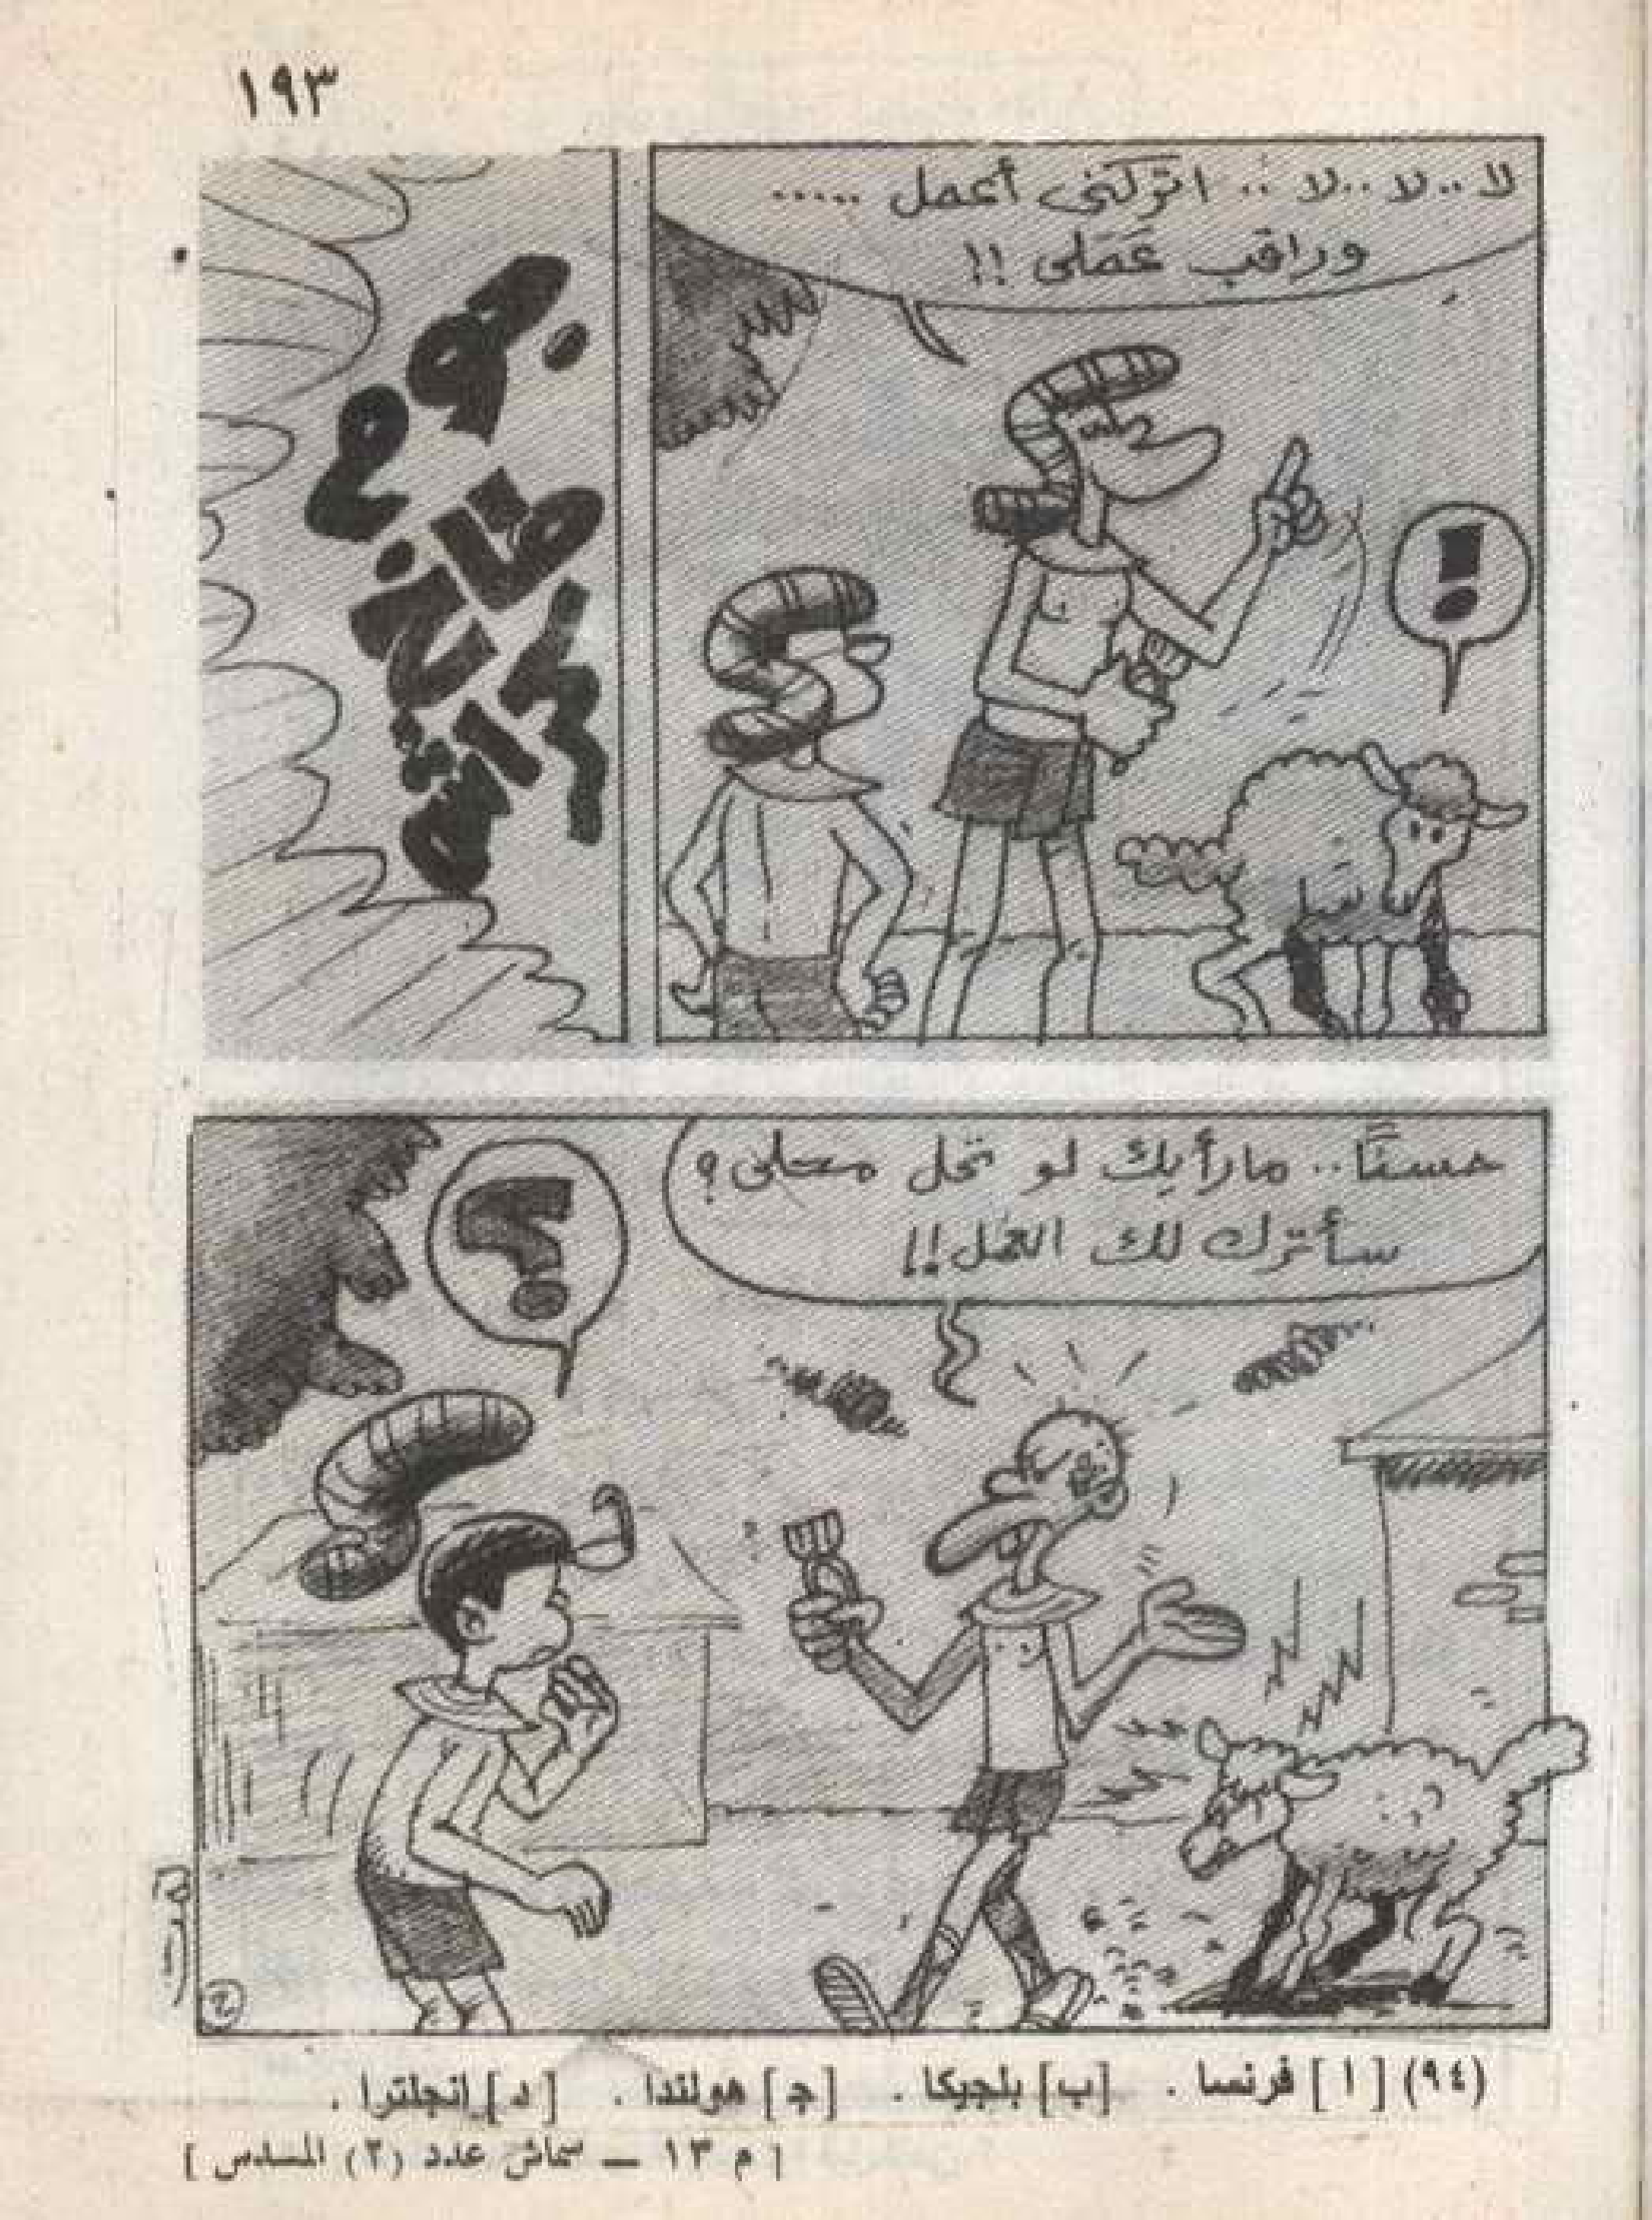 ١٩٣
لا .. لا .. لا .. اتركنى أعمل .....
وراقب عَمَلى !!
!
بووم
طاخ
كراش
حسنًا .. مارأيك لو تحل محلى ؟
سأترك لك العمل !!
؟
(٩٤) [ ا ] فرنسا . [ب] بلجيكا . [ جـ ] هولندا . [ د ] إنجلترا .
[ م ١٣ ــ سماش عدد (٢) المسدس ]